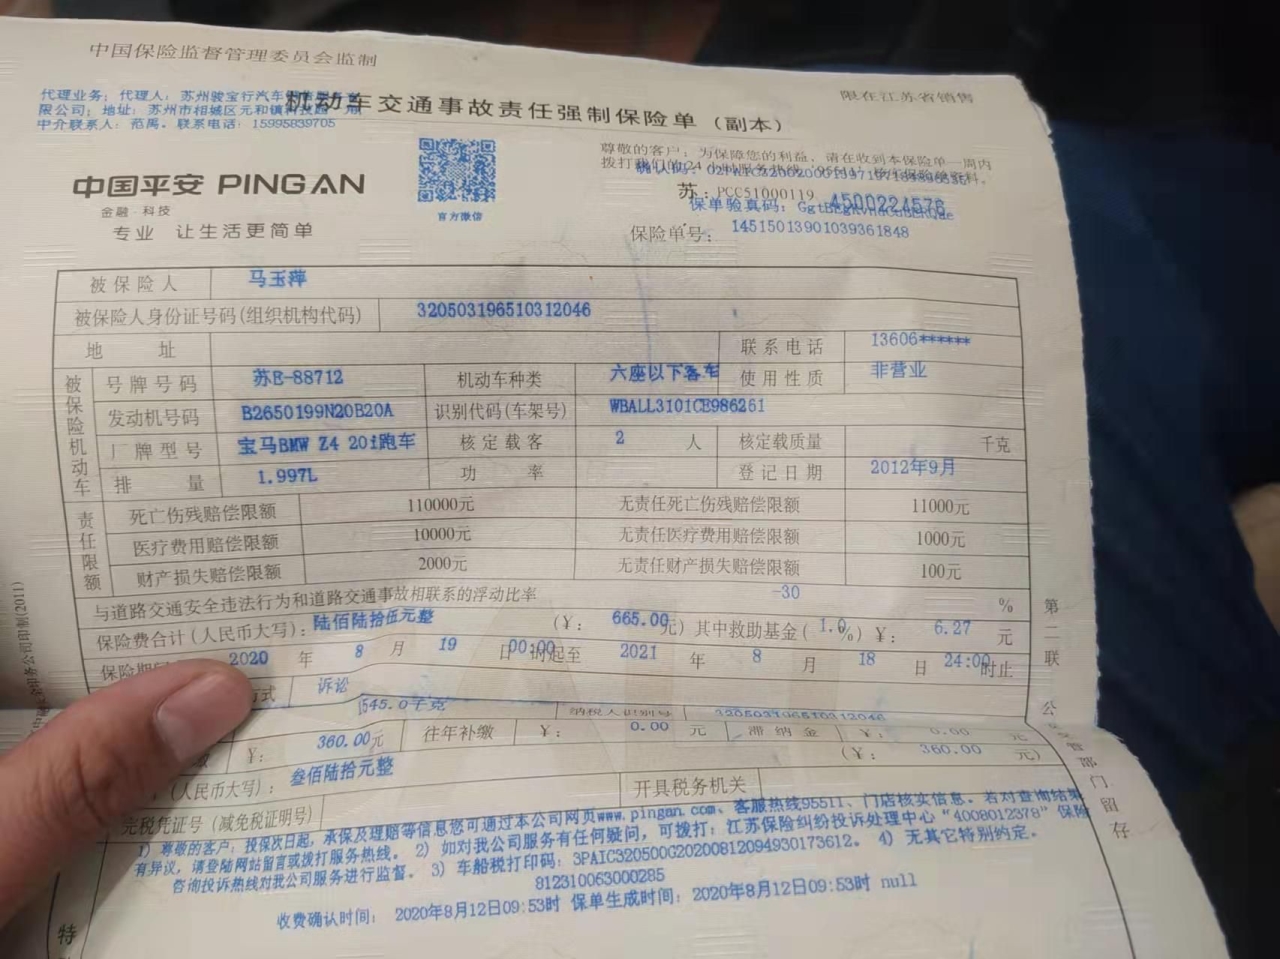 中国保险监督管理委员会监制
限在江苏省销售
代理业务；代理人：苏州骏宝行汽车
限公司；地址：苏州市相城区元和镇
中介联系人：范禹。联系电话：15995839705
机动车交通事故责任强制保险单（副本）
尊敬的客户：为保障您的利益，请在收到本保险单一周内
中国平安 PINGAN
金融·科技
专业 让生活更简单
官方微信
苏：PCC51000119 4500224576
保单验真码：
保险单号： 14515013901039361848
被保险人 马玉萍
被保险人身份证号码(组织机构代码) 320503196510312046
地 址 联系电话 13606******
被保险机动车
号牌号码 苏E-88712 机动车种类 六座以下客车 使用性质 非营业
发动机号码 B2650199N20B20A 识别代码(车架号) WBALL3101CE986261
厂牌型号 宝马BMW Z4 20i跑车 核定载客 2 人 核定载质量 千克
排 量 1.997L 功 率 登记日期 2012年9月
责任限额
死亡伤残赔偿限额 110000元 无责任死亡伤残赔偿限额 11000元
医疗费用赔偿限额 10000元 无责任医疗费用赔偿限额 1000元
财产损失赔偿限额 2000元 无责任财产损失赔偿限额 100元
与道路交通安全违法行为和道路交通事故相联系的浮动比率 -30 %
保险费合计(人民币大写)：陆佰陆拾伍元整 (¥： 665.00元) 其中救助基金(1.0%) ¥： 6.27 元
保险期 2020 年 8 月 19 日 00:00时起至 2021 年 8 月 18 日 24:00时止
式 诉讼
1545.0千克 纳税人识别号 320503196510312046
¥： 360.00元 往年补缴 ¥： 0.00 元 滞纳金 ¥： 0.00 元
(人民币大写)： 叁佰陆拾元整 (¥： 360.00 元)
完税凭证号（减免税证明号） 开具税务机关
1) 尊敬的客户：投保次日起，承保及理赔等信息您可通过本公司网页www.pingan.com、客服热线95511、门店核实信息。若对查询结果
有异议，请登陆网站留言或拨打服务热线。 2) 如对我公司服务有任何疑问，可拨打：江苏保险纠纷投诉处理中心“4008012378”保险
咨询投诉热线对我公司服务进行监督。 3) 车船税打印码：3PAIC320500G2020081209493017​3612。 4) 无其它特别约定。
812310063000285
收费确认时间： 2020年8月12日09:53时 保单生成时间：2020年8月12日09:53时 null
第二联
公
管部门留存
特